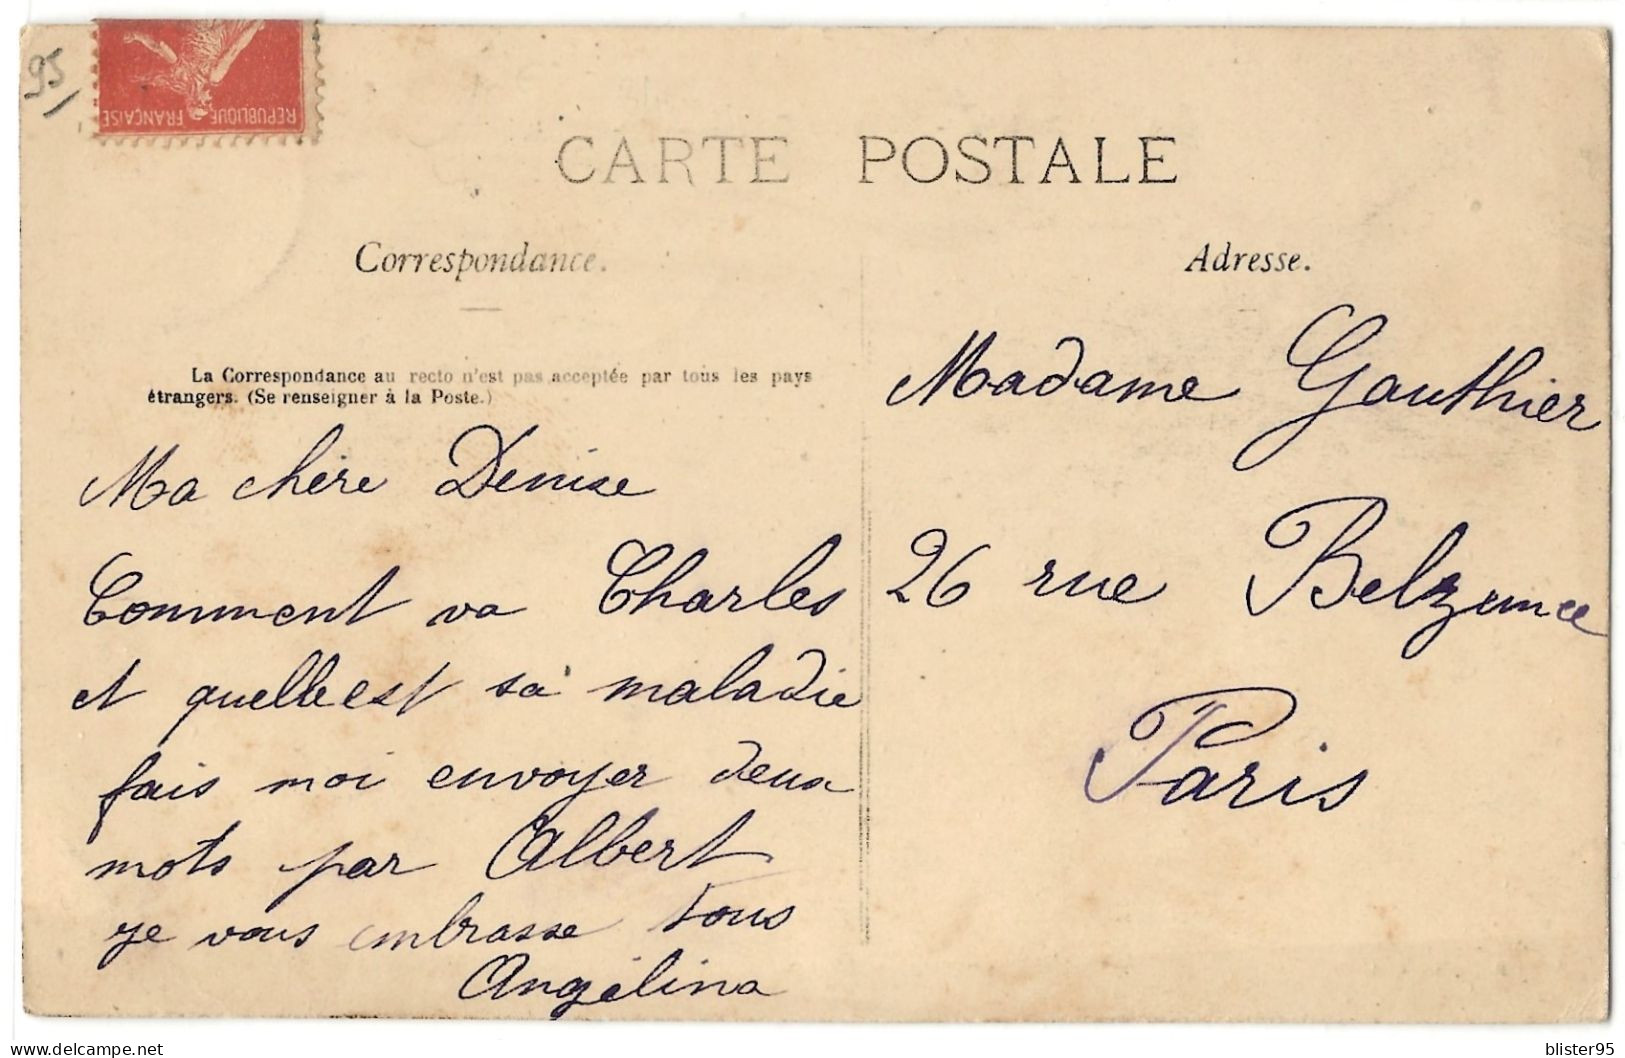 95
REPUBLIQUE FRANÇAISE
CARTE POSTALE
Correspondance.
La Correspondance au recto n'est pas acceptée par tous les pays
étrangers. (Se renseigner à la Poste.)
Ma chère Denise
Comment va Charles
et quelle est sa maladie
fais moi envoyer deux
mots par Albert
je vous embrasse tous
Angélina
Adresse.
Madame Gauthier
26 rue Belzunce
Paris
delcampe.net
blister95